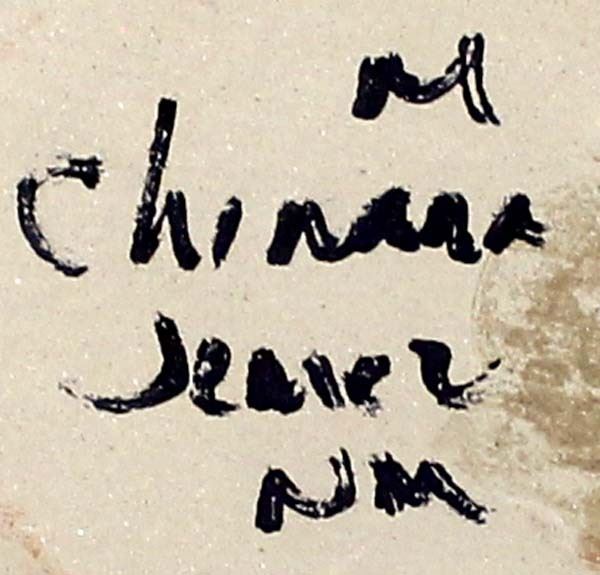 M
Chinana
Jemez
NM